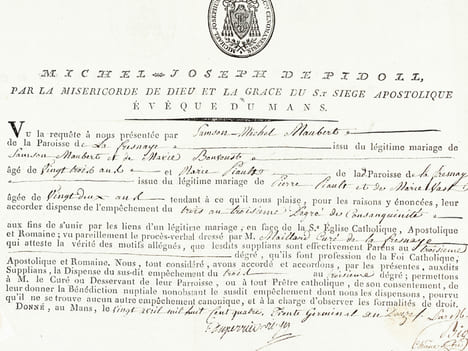 MICHEL-JOSEPH DE PIDOLL,
PAR LA MISERICORDE DE DIEU ET LA GRACE DU S.T SIEGE APOSTOLIQUE
ÉVÊQUE DU MANS.
VU la requête à nous présentée par Samson-Michel Mauberte
de la Paroisse de La fresnaye issu du légitime mariage de
Samson Mauberte et de Marie
âgé de Vingt trois ans et Marie Piault de lad Paroisse de la fresnaye
issue du légitime mariage de Pierre Piault et de Marie
âgée de Vingt-deux ans tendant à ce qu'il nous plaise, pour les raisons y énoncées, leur
accorder dispense de l'empêchement du trois au troisieme Degré de Consanguinité
aux fins de s'unir par les liens d'un légitime mariage, en face de la Ste Eglise Catholique, Apostolique
et Romaine; vu pareillement le procès-verbal dressé par M. Maillard Curé de la fresnaye
qui atteste la vérité des motifs allégués, que lesdits supplians sont effectivement Parens au troisieme
degré, qu'ils sont profession de la Foi Catholique,
Apostolique et Romaine. Nous, tout considéré, avons accordé et accordons, par les présentes, auxdits
Supplians, la Dispense du sus-dit empêchement du trois au troisieme dégré; permettons
à M. le Curé ou Desservant de leur Parroisse, ou à tout Prêtre catholique, de son consentement, de
leur donner la Bénédiction nuptiale nonobstant le susdit empêchement dont nous les dispensons, pourvu
qu'il ne se trouve aucun autre empêchement canonique, et à la charge d'observer les formalités de droit.
DONNÉ, au Mans, le vingt avril mil huit Cent quatre, trente Germinal an Douze
Duperrier